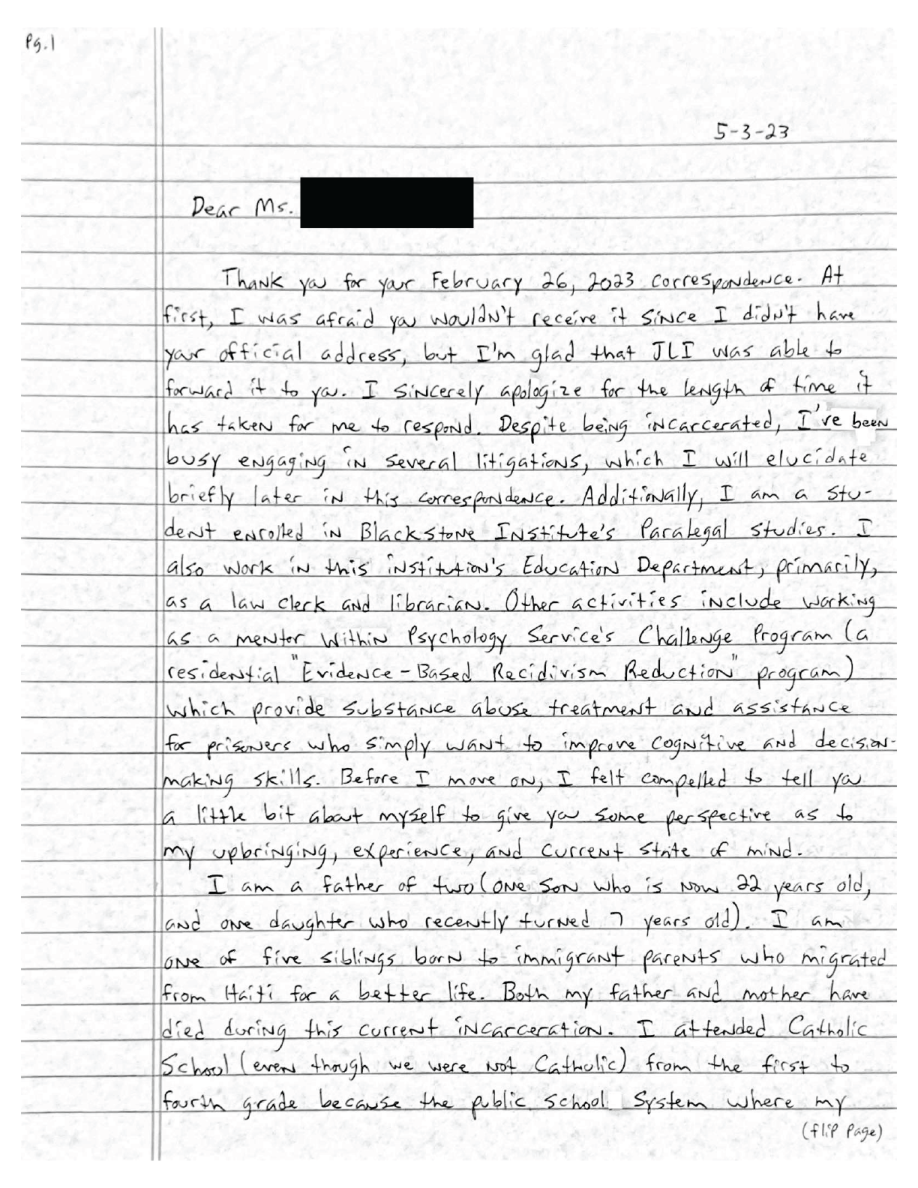 Pg.1
5-3-23
Dear Ms.
Thank you for your February 26, 2023 correspondence. At
first, I was afraid you wouldn't receive it since I didn't have
your official address, but I'm glad that JLI was able to
forward it to you. I sincerely apologize for the length of time it
has taken for me to respond. Despite being incarcerated, I've been
busy engaging in several litigations, which I will elucidate
briefly later in this correspondence. Additionally, I am a stu-
dent enrolled in Blackstone Institute's Paralegal Studies. I
also work in this institution's Education Department, primarily,
as a law clerk and librarian. Other activities include working
as a mentor within Psychology Service's Challenge Program (a
residential "Evidence-Based Recidivism Reduction" program)
which provide substance abuse treatment and assistance
for prisoners who simply want to improve cognitive and decision-
making skills. Before I move on, I felt compelled to tell you
a little bit about myself to give you some perspective as to
my upbringing, experience, and current state of mind.
I am a father of two (one son who is now 22 years old,
and one daughter who recently turned 7 years old). I am
one of five siblings born to immigrant parents who migrated
from Haiti for a better life. Both my father and mother have
died during this current incarceration. I attended Catholic
School (even though we were not Catholic) from the first to
fourth grade because the public school system where my
(flip page)